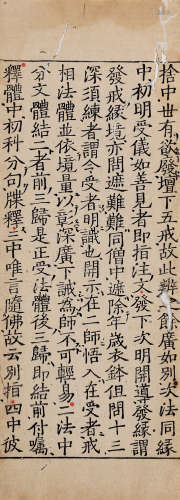 捨中世有欲發壇下五戒故此辯之餘廣如別次法同緣
中初明受儀如善見者即指注文發下次明開導發緣謂
發戒緣境亦問遮難難同僧中遮除年歲衣鉢但問十三
深須練者謂令受者明識也開示在二師悟入在受者戒
相法體並依境量以彰深廣下誡為師不可輕易二法中
分文體結二者前三歸是正受法體後三歸即結前付囑
釋體中初科分句牒釋二中唯言隨佛故云別指四中彼